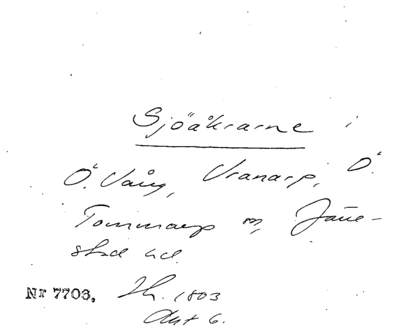 Sjöåkrarne i
Ö. Vång, Vranarp, Ö.
Tommarp m, Järre-
stad hd.
Nr 7703.
1803
Akt 6.